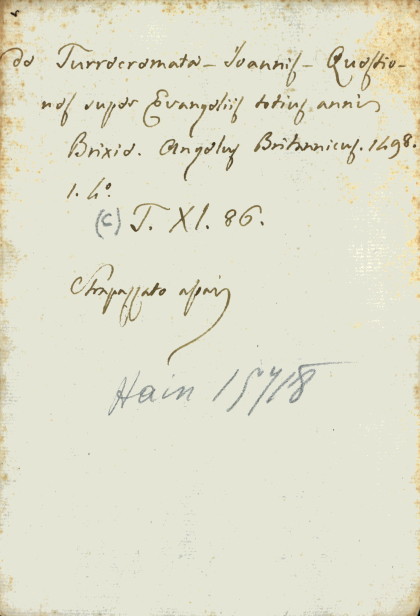 de Turrecremata - Joannis - Questio-
nes super Evangeliis totius anni
Brixie. Angelus Britannicus. 1498.
1. 4º.
(c) T. XI. 86.
Strapazzato assai
Hain 15718